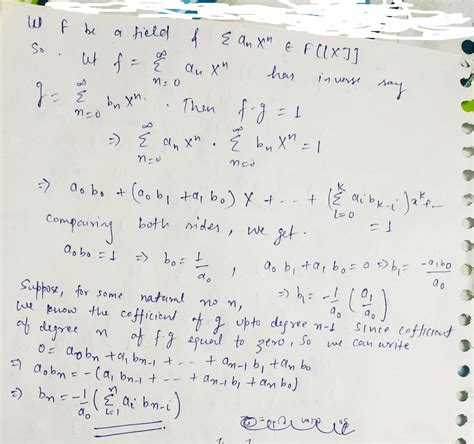 Let F be a field & Σ aₙ Xⁿ ∈ F[[X]]
So. Let f = Σ_{n=0}^{∞} aₙ Xⁿ has inverse say
g = Σ_{n=0}^{∞} bₙ Xⁿ. Then f·g = 1
⇒ Σ_{n=0}^{∞} aₙ Xⁿ · Σ_{n=0}^{∞} bₙ Xⁿ = 1
⇒ a₀b₀ + (a₀b₁ + a₁b₀) X + .. + (Σ_{i=0}^{k} aᵢ b_{k-i}) x^k + — = 1
comparing both sides, we get.
a₀b₀ = 1 ⇒ b₀ = 1/a₀ , a₀b₁ + a₁b₀ = 0 ⇒ b₁ = -a₁b₀/a₀
⇒ b₁ = -1/a₀ (a₁/a₀)
Suppose, for some natural no n,
we know the cofficient of g upto degree n-1. Since cofficient
of degree n of f·g equal to zero, So we can write
0 = a₀bₙ + a₁bₙ₋₁ + .. + aₙ₋₁b₁ + aₙb₀
⇒ a₀bₙ = -(a₁bₙ₋₁ + -- + aₙ₋₁b₁ + aₙb₀)
⇒ bₙ = -1/a₀ (Σ_{i=1}^{n} aᵢ bₙ₋ᵢ)